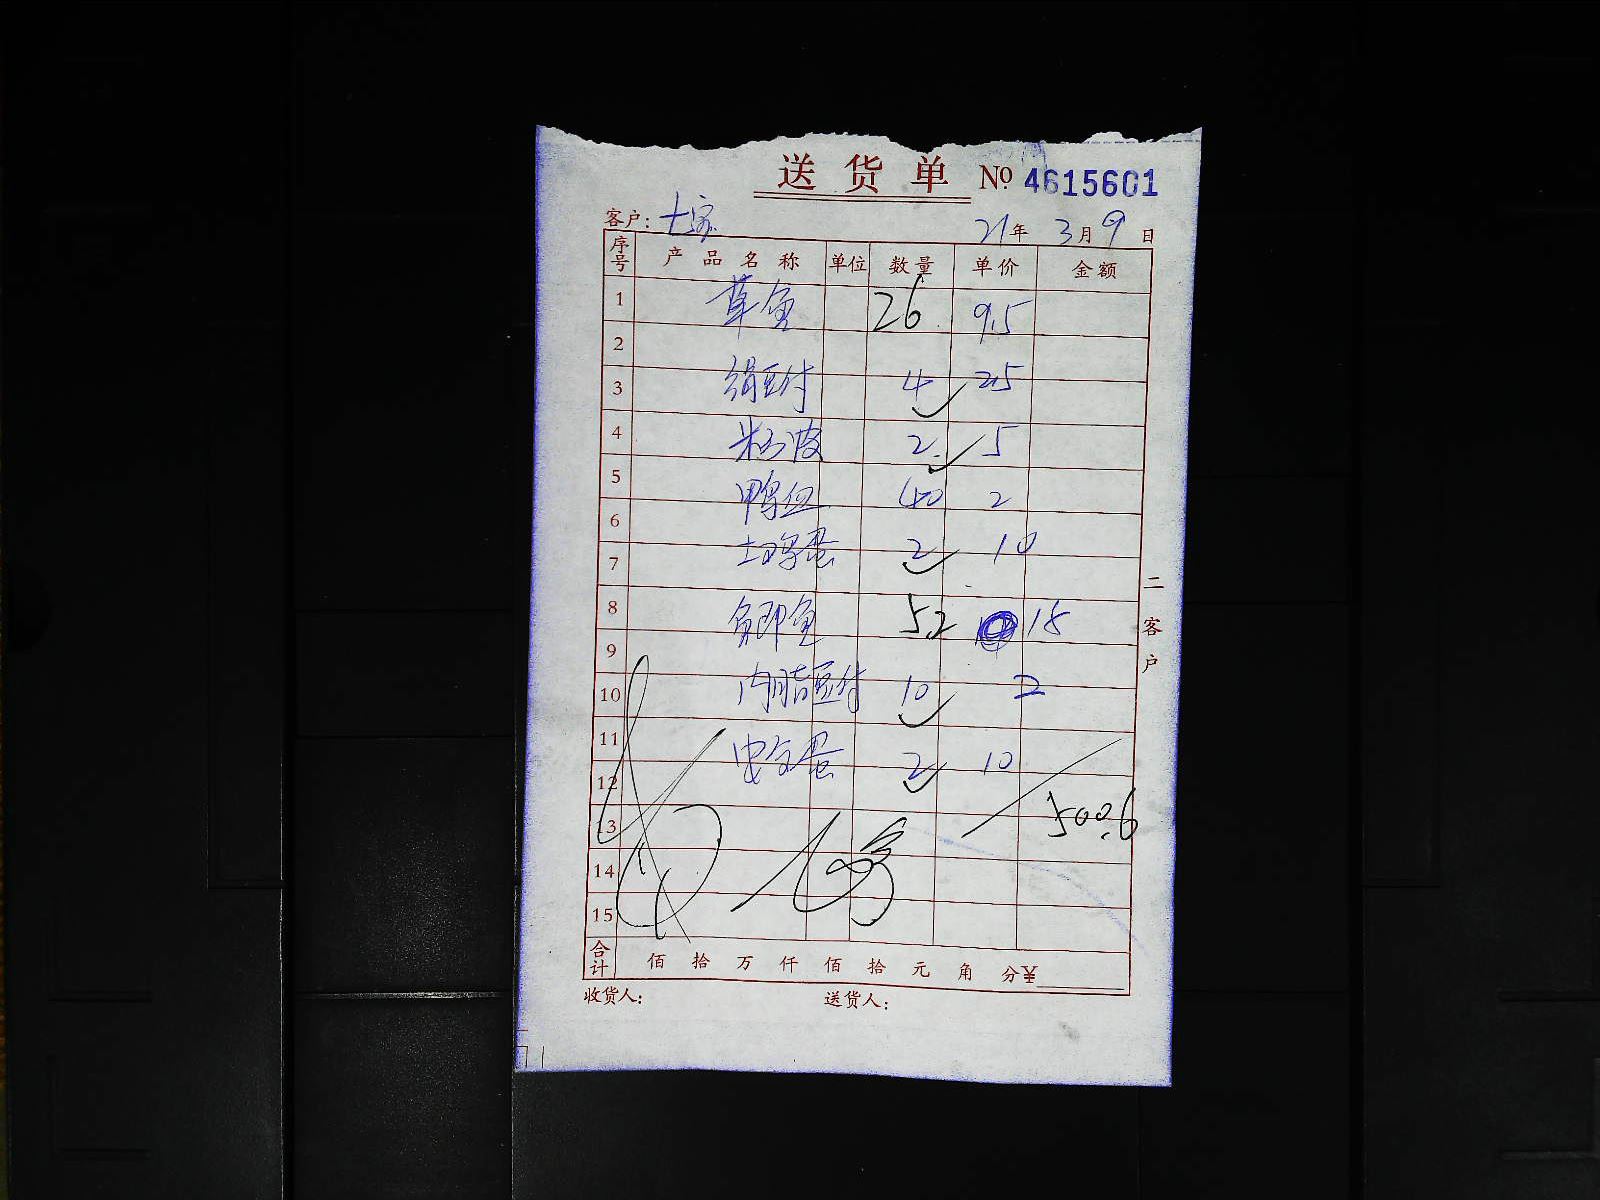 送货单 № 4615601
客户: 21年 3月 9日
序号 产品名称 单位 数量 单价 金额
1 草鱼 26 9.5
2
3 绢豆付 4 2.5
4 2 5
5 鸭血 40 2
6
7 土鸡蛋 2 10
8 鲫鱼 5.2 18
9
10 内脂豆付 10 2
11
12 蛋 2 10
13 500.6
14
15
合计 佰 拾 万 仟 佰 拾 元 角 分¥
收货人: 送货人:
二 客户